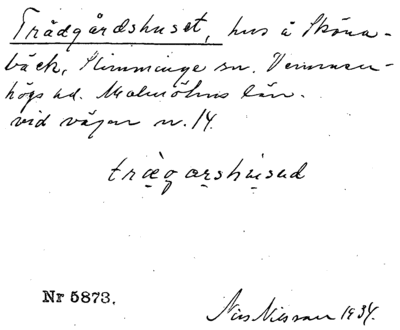 Trädgårdshuset, hus å Sköna-
bäck, Slimminge sn. Vemmen-
högs hd. Malmöhus län.
vid vägen nr. 14.
trägarshusad
Nr 5873.
Nils Nilsson 1934.